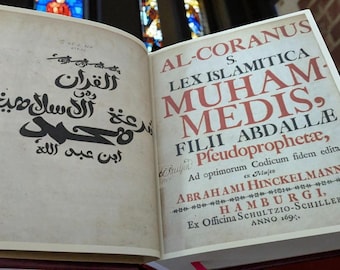 القران
شرعة الاسلاميه
محمد
ابن عبد الله
AL-CORANUS
S.
LEX ISLAMITICA
MUHAM-
MEDIS,
FILII ABDALLÆ
Pseudoprophetæ,
Ad optimorum Codicum fidem edita
ex Museo
ABRAHAMI HINCKELMANN
HAMBURGI,
Ex Officina SCHULTZIO-SCHILLER
ANNO